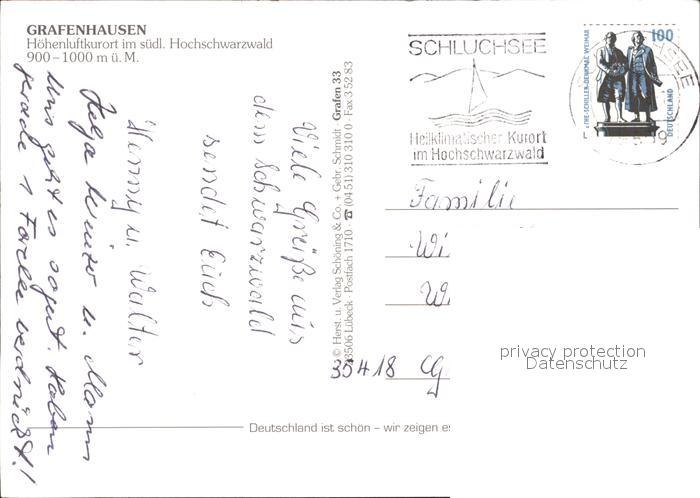 GRAFENHAUSEN
Höhenluftkurort im südl. Hochschwarzwald
900–1000 m ü. M.
Viele Grüße aus
dem Schwarzwald
sendet Euch
Henny u. Walter
Helja u. Mann
Uns geht es sogut. Haben
gerade 1 Forelle verdrückt!
© Herst. u. Verlag Schöning & Co. + Gebr. Schmidt · Grafen 33
23506 Lübeck · Postfach 1710 · ☎ (0451) 310 310 0 · Fax 3 52 83
SCHLUCHSEE
Heilklimatischer Kurort
im Hochschwarzwald
GOETHE-SCHILLER-DENKMAL WEIMAR
100
DEUTSCHLAND
Familie
Wi
W
35418
privacy protection
Datenschutz
Deutschland ist schön – wir zeigen es